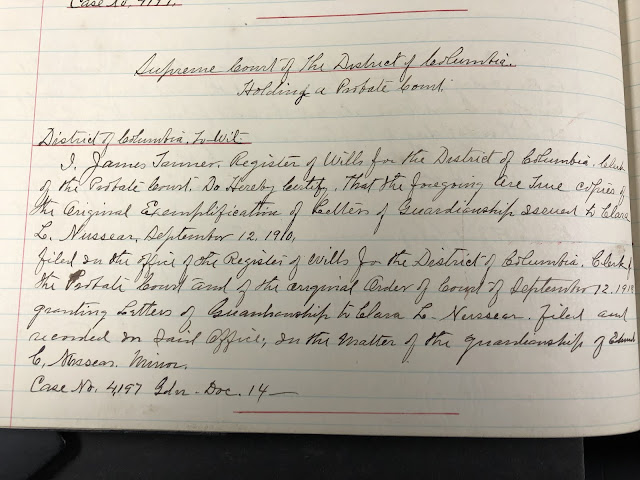 Case No. 4197.
Supreme Court of the District of Columbia.
Holding a Probate Court.
District of Columbia, To Wit
I, James Tanner, Register of Wills for the District of Columbia, Clerk
of the Probate Court, Do Hereby Certify, That the foregoing are True copies of
the Original Exemplification of Letters of Guardianship issued to Clara
L. Nussear, September 12, 1910,
filed in the office of the Register of Wills for the District of Columbia, Clerk of
the Probate Court and of the original Order of Court of September 12, 1910
granting Letters of Guardianship to Clara L. Nussear. filed and
recorded in said Office, in the matter of the guardianship of
C, Nussear, Minor.
Case No. 4197 Gdn. Doc. 14